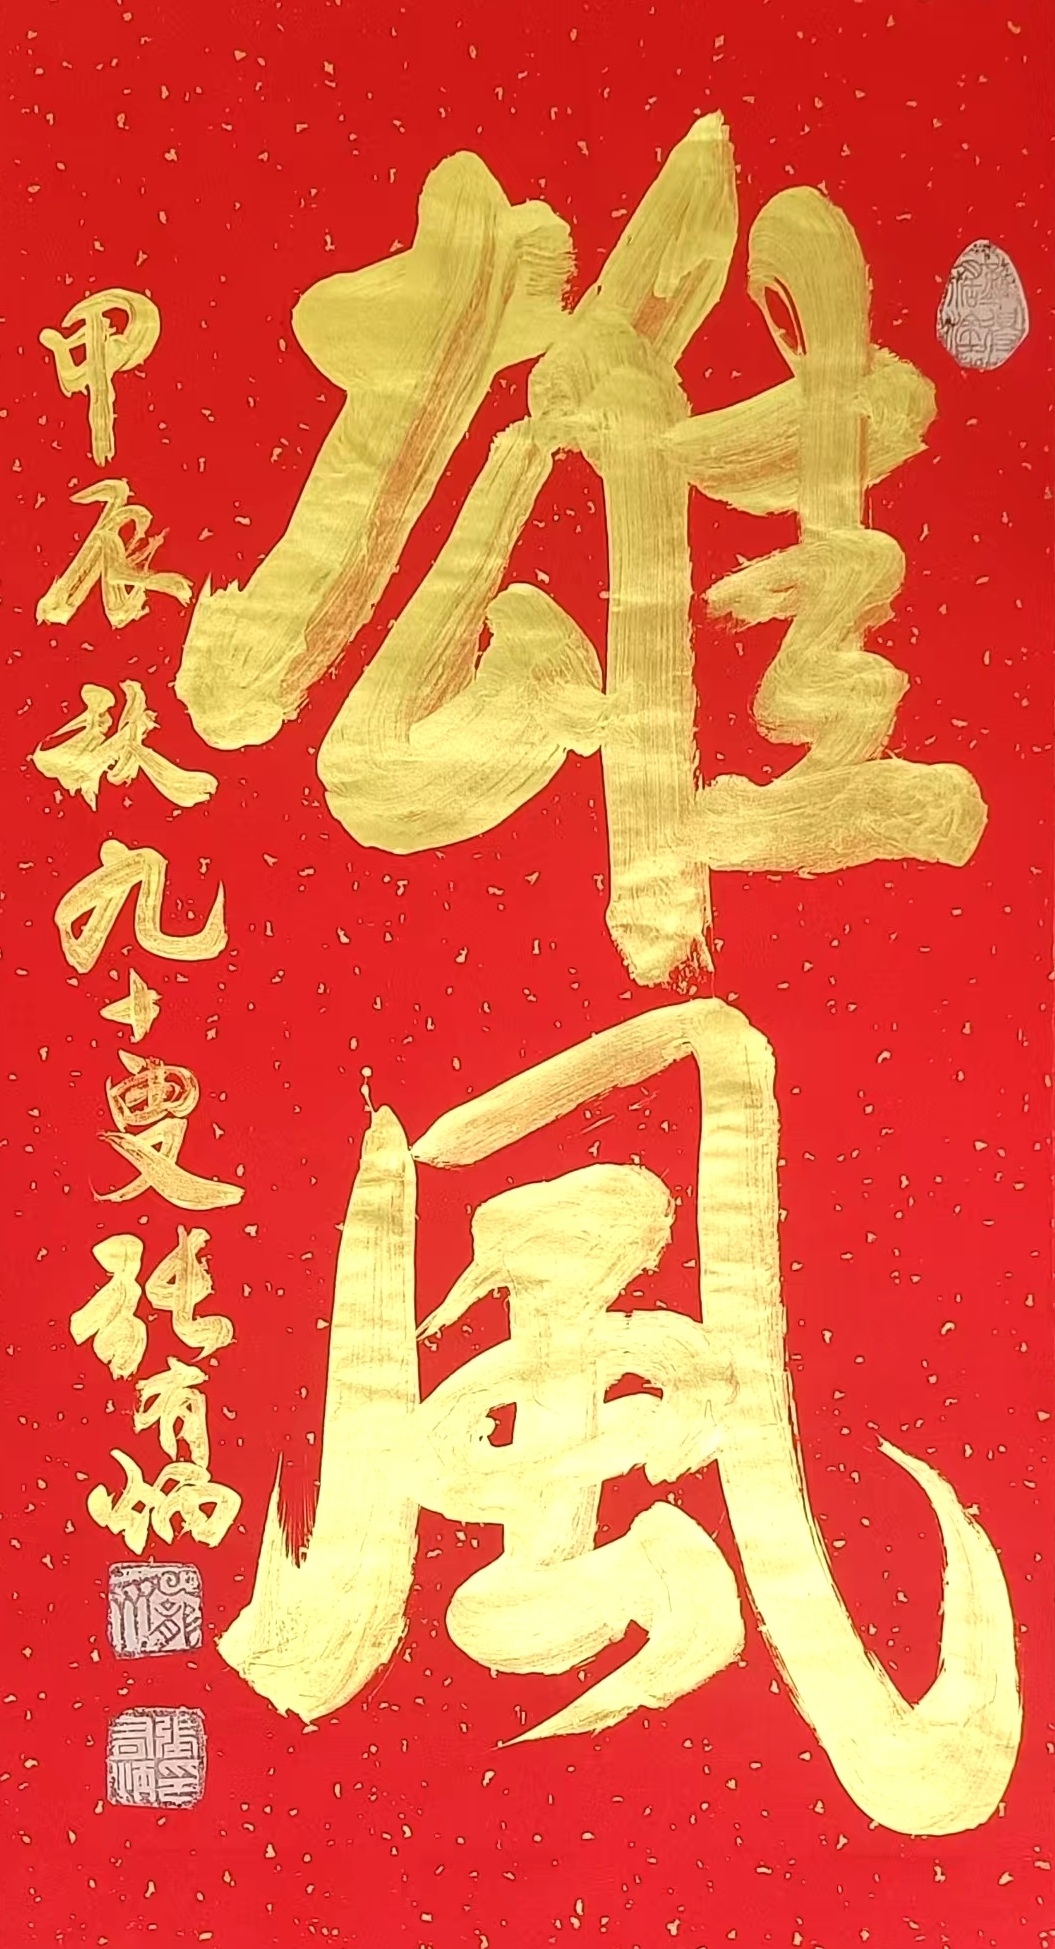 雄風
甲辰秋九十叟張有炳